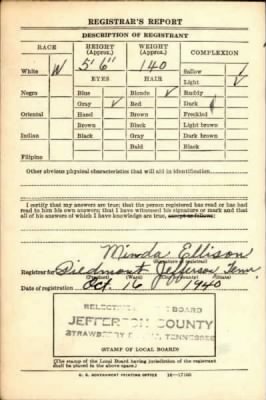 REGISTRAR'S REPORT
DESCRIPTION OF REGISTRANT
RACE HEIGHT (Approx.) WEIGHT (Approx.) COMPLEXION
White W 5' 6" 140 Sallow
EYES HAIR Light ✓
Negro Blue Blonde ✓ Ruddy
Gray ✓ Red Dark
Oriental Hazel Brown Freckled
Indian Brown Black Light brown
Black Gray Dark brown
Filipino Bald Black
Other obvious physical characteristics that will aid in identification
I certify that my answers are true; that the person registered has read or has had
read to him his own answers; that I have witnessed his signature or mark and that
all of his answers of which I have knowledge are true, except as follows:
Minda Ellison
(Signature of registrar)
Registrar for Piedmont Jefferson Tenn
Date of registration Oct. 16 1940
SELECTIVE BOARD
JEFFERSON COUNTY
STRAWBERRY TENNESSEE
(STAMP OF LOCAL BOARD)
(The stamp of the Local Board having jurisdiction of the registrant
shall be placed in the above space.)
U. S. GOVERNMENT PRINTING OFFICE